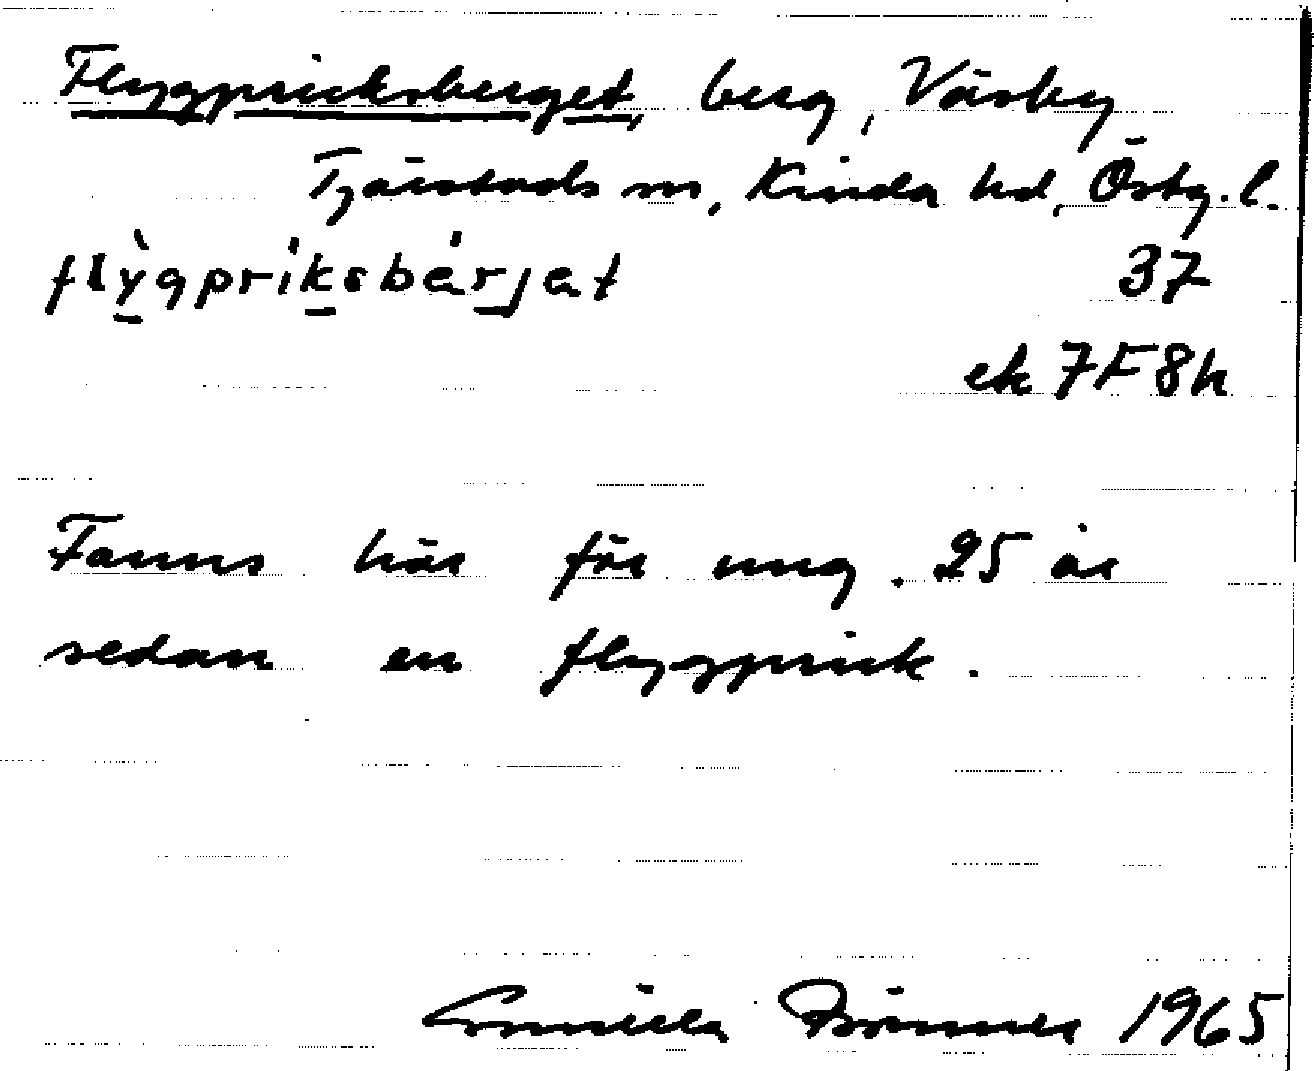 Flygpricksberget, berg, Väsby
Tjärstads sn, Kinda hd, Östg. l.
flỳgpriksbärjet 37
ek 7F8h
Fanns här för ung. 25 år
sedan en flygprick.
Gunilla 1965